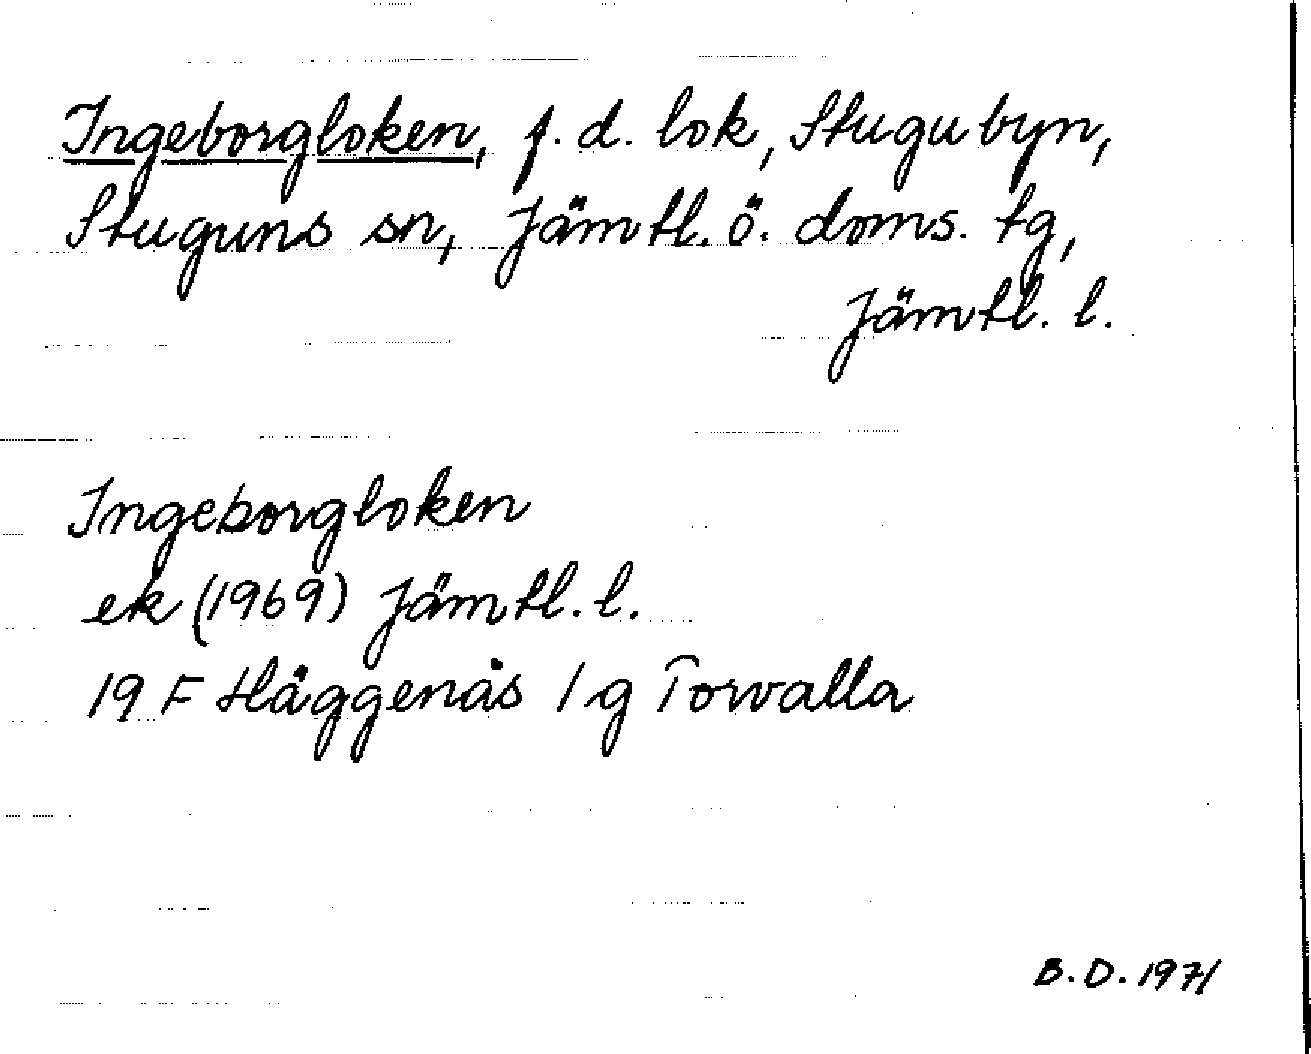 Ingeborgloken, f.d. lok, Stugubyn,
Stuguns sn, Jämtl. ö. doms. tg,
Jämtl. l.
Ingeborgloken
ek (1969) Jämtl. l.
19 F Häggenås 1 g Torvalla
B.D. 1971